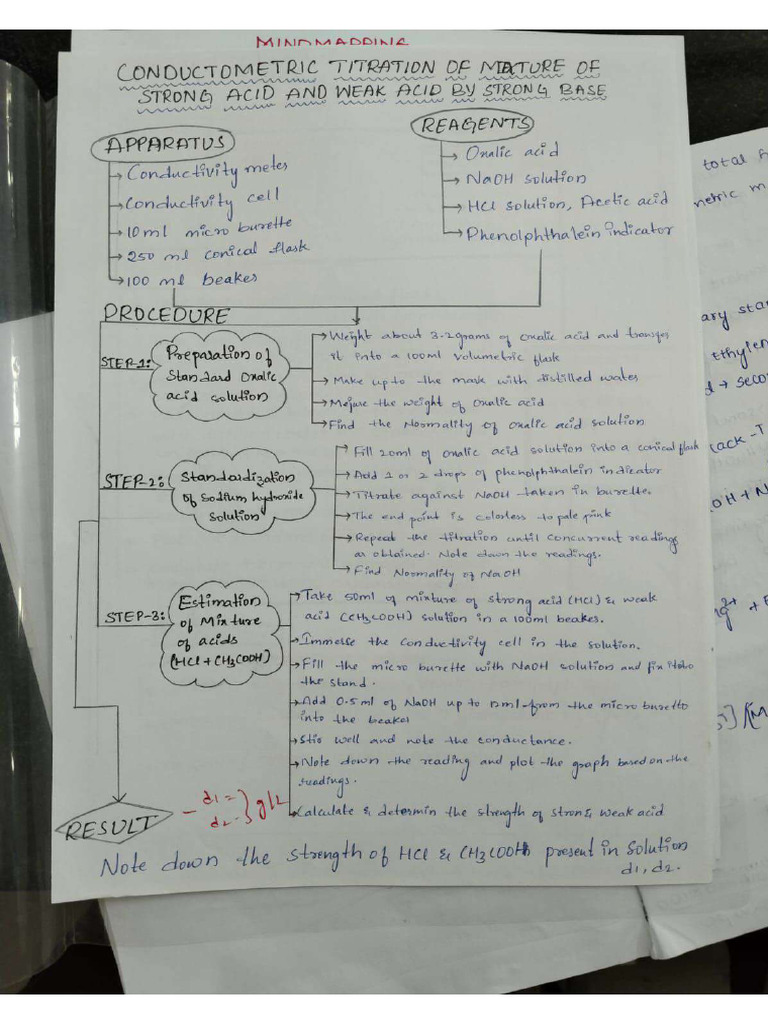 MINDMAPPING
CONDUCTOMETRIC TITRATION OF MIXTURE OF
STRONG ACID AND WEAK ACID BY STRONG BASE
APPARATUS
→ Conductivity meter
→ Conductivity cell
→ 10ml micro burette
→ 250 ml conical flask
→ 100 ml beaker
REAGENTS
→ Oxalic acid
→ NaOH solution
→ HCl solution, Acetic acid
→ Phenolphthalein indicator
PROCEDURE
STEP-1:
Preparation of
Standard Oxalic
acid solution
→ Weight about 3.2grams of oxalic acid and transfer
it into a 100ml volumetric flask
→ Make up to the mark with distilled water
→ Mejure the weight of Oxalic acid
→ Find the Normality of Oxalic acid solution
STEP-2:
Standardization
of Sodium hydroxide
Solution
→ Fill 20ml of oxalic acid solution into a conical flask
→ Add 1 or 2 drops of phenolphthalein indicator
→ Titrate against NaOH taken in burette.
→ The end point is colorless to pale pink
→ Repeat the titration until concurrent readings
as obtained. Note down the readings.
→ Find Normality of NaOH
STEP-3:
Estimation
of Mixture
of acids
(HCl + CH3COOH)
→ Take 50ml of mixture of strong acid (HCl) & weak
acid (CH3COOH) solution in a 100ml beaker.
→ Immerse the conductivity cell in the solution.
→ Fill the micro burette with NaOH solution and fix it to
the stand.
→ Add 0.5ml of NaOH up to 12ml from the micro buretto
into the beaker
→ Stir well and note the conductance.
→ Note down the reading and plot the graph based on the
readings.
→ Calculate & determin the strength of stron & weak acid
RESULT
- d1 =
d2 - } g/L
Note down the strength of HCl & CH3COOH present in Solution
d1, d2.
total
metric m
ary sta
ethylen
d → seco
ack-T
OH + N